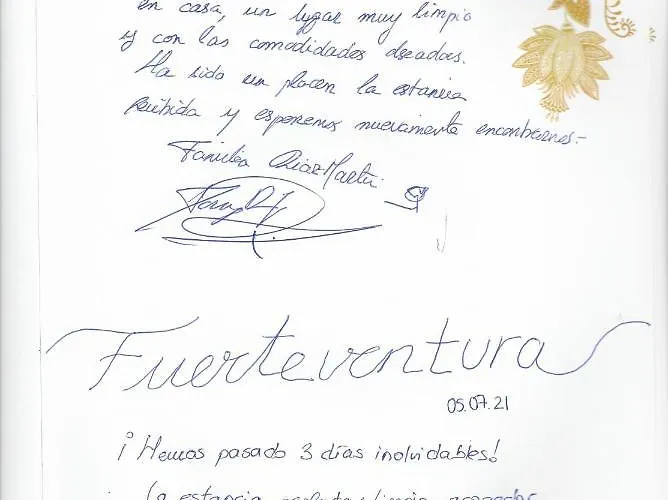 en casa, un lugar muy limpio
y con las comodidades deseadas.
Ha sido un placer la estancia
recibida y esperemos nuevamente encontrarnos.-
Familia Díaz Martín
Fuerteventura
05.07.21
¡Hemos pasado 3 días inolvidables!
La estancia perfecta, limpia, acogedor